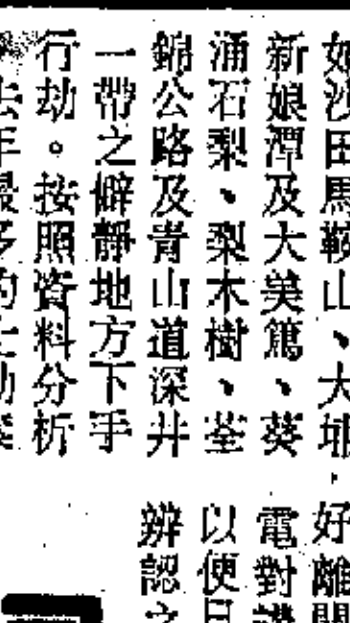 如沙田馬鞍山、大埔
新娘潭及大美篤、葵
涌石梨、梨木樹、荃
錦公路及青山道深井
一帶之僻靜地方下手
行劫。按照資料分析
去年最多的士劫案
好離開
電對講
以便日
辨認之